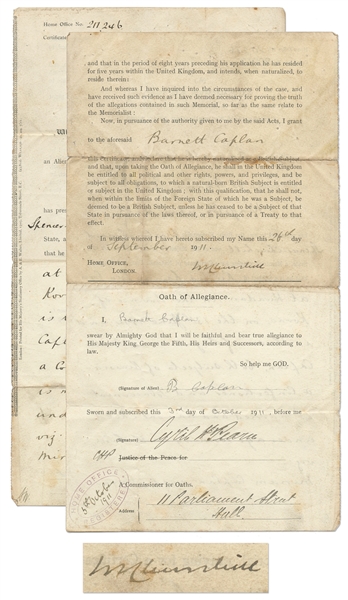 Home Office No. 211,246
Certificate
an Alien
has pres
Spencer
State, a
that he
at
Kov
is
Capl
a Co
is
und
viz
Min
and that in the period of eight years preceding his application he has resided
for five years within the United Kingdom, and intends, when naturalized, to
reside therein:
And whereas I have inquired into the circumstances of the case, and
have received such evidence as I have deemed necessary for proving the truth
of the allegations contained in such Memorial, so far as the same relate to
the Memorialist:
Now, in pursuance of the authority given to me by the said Acts, I grant
to the aforesaid Barnett Caplan
this Certificate, and declare that he is hereby naturalized as a British Subject,
and that, upon taking the Oath of Allegiance, he shall in the United Kingdom
be entitled to all political and other rights, powers, and privileges, and be
subject to all obligations, to which a natural-born British Subject is entitled
or subject in the United Kingdom; with this qualification, that he shall not,
when within the limits of the Foreign State of which he was a Subject, be
deemed to be a British Subject, unless he has ceased to be a Subject of that
State in pursuance of the laws thereof, or in pursuance of a Treaty to that
effect.
In witness whereof I have hereto subscribed my Name this 26th day
of September 1911.
HOME OFFICE,
LONDON.
WSChurchill
Oath of Allegiance.
I, Barnett Caplan
swear by Almighty God that I will be faithful and bear true allegiance to
His Majesty King George the Fifth, His Heirs and Successors, according to
law.
So help me GOD.
(Signature of Alien) B Caplan
Sworn and subscribed this 3rd day of October 1911, before me
(Signature) Cyril
Justice of the Peace for
A Commissioner for Oaths.
Address 11 Parliament Street
Hull
HOME OFFICE
5th October
1911
REGISTERED
WSChurchill